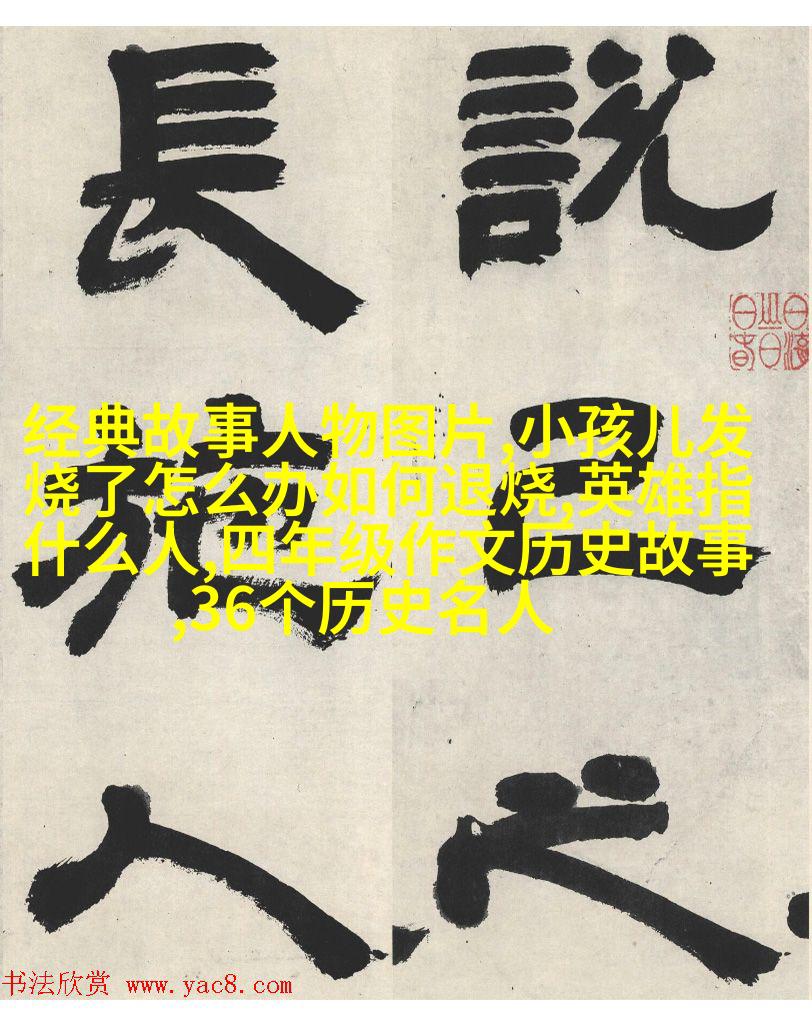 說己之
長施人
经典故事人物图片,小孩儿发
烧了怎么办如何退烧,英雄指
什么人,四年级作文历史故事
,36个历史名人
书法欣赏 www.yac8.com